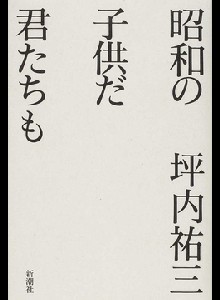 昭和の
子供だ
君たちも
坪内祐三
新潮社